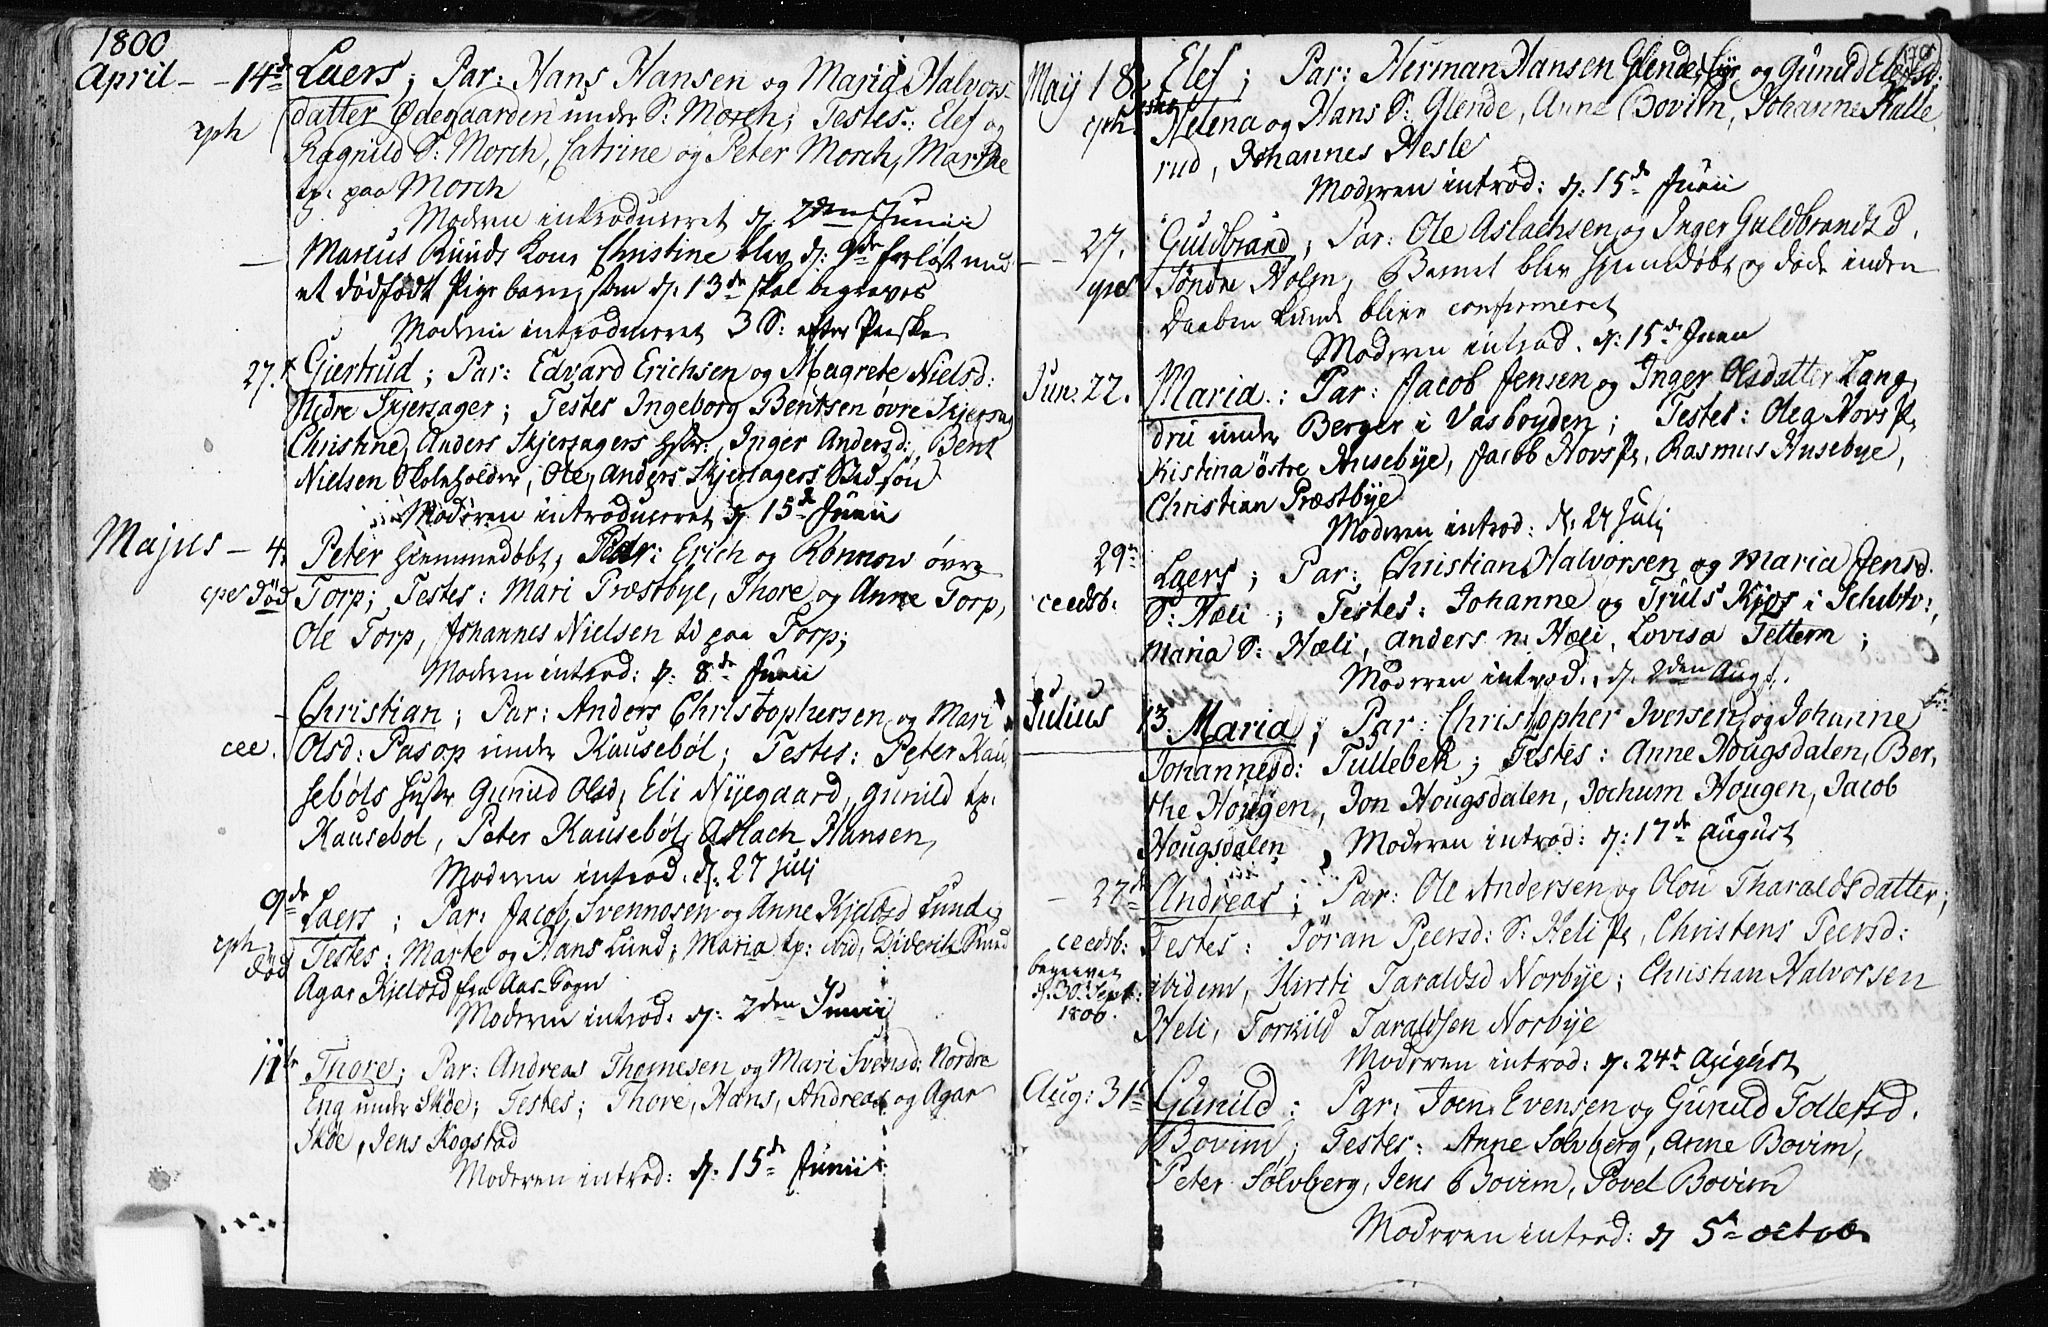 1800
April - - 14de Laers; Par: Hans Hansen og Maria Halvors-
eph datter Ødegaarden under S: Morch; Testes: Elef og
Ragnild S: Morch, Catrine og Peter Morch, Marthe
tp. paa Morch
Moderen introduceret d. 2den Junii
— Marcus Ruuds Kone Christine blev d: 9de forløst med
et dødfødt Pigebarn, som d. 13de skal begraves
Moderen introduceret 3 S: efter Paaske
27. Giertrud; Par: Edvard Erichsen og Magrete Nielsd:
Nedre Skjersager; Testes Ingeborg Bentsen øvre Skjersag
Christine, Anders Skjersagers Hstr:, Inger Andersd:, Bent
Nielsen Skoleholder, Ole, Anders Skjersagers Stedsøn
Moderen introduceret d. 15de Junii
Majus - 4. Peter hiemmedøbt; Par: Erich og Rønnow øvre
cpes død Torp; Testes: Mari Præstbye, Thore og Anne Torp,
Ole Torp, Johannes Nielsen ti paa Torp;
Moderen introd: d. 8de Junii
- Christian; Par: Anders Christophersen og Mari
cee. Olsd: Pasop under Kausebøl; Testes: Peter Kau
sebøls Huster Gunild Olsd, Eli Nyegaard, Gunild tp:
Kausebol, Peter Kausebøl, Aslach Hansen,
Moderen introd. d. 27 Juli
9de Laers; Par: Jacob Svennesen og Anne Kjelds Lunde,
eph død Testes: Marte og Hans Lund; Maria tp: ibid, Diderich
Agar Kjeldsd fra Aas-Sogn
Moderen introd: d: 2den Junii
11te Thore; Par: Andreas Thomesen og Mari Svensd: Nordre
Eng under Skøe; Testes; Thore, Hans, Andreas og Agar
Skøe, Jens Kogstad
Moderen introd: d. 15de Junii
Maij 18. Elef; Par: Herman Hansen Glende og Gunild
eph Helena og Hans S: Glende, Anne Bovim, Johanne Kulle
rud, Johannes Hesle
Moderen introd: d. 15de Junii
- 27. Guldbrand; Par: Ole Aslachsen og Inger Guldbrandsd.
Søndre Holm, Barnet blev hjemdøbt og døde inden
Daaben kunde blive confirmeret
Moderen introd. d: 15de Junii
Jun. 22. Maria: Par: Jacob Jensen og Inger Olsdatter Lang
drii under Berger i Vasboyden; Testes: Olea Hovs P.
Kistina østre Husebye, Jacob Hovs P., Rasmus Husebye,
Christian Præstbye
Moderen introd: d. 27 Julj
29de Laers; Par: Christian Halvorsen og Maria Jensd.
ceedsb: S: Hæli; Testes: Johanne og Truls Kjos i Schibtv:,
Maria S: Hæli, Anders n: Hæli, Lovisa Tettem;
Moderen introd.. d. 2den Augs.
Julius 13. Maria; Par: Christopher Iversen og Johanne
Johannesd: Tullebek; Testes: Anne Hougsdalen, Ber,
the Hougen, Jon Hougsdalen, Jochum Hougen, Jacob
Hougsdalen, Moderen introd: d: 17de August
- 27de Andreas; Par: Ole Andersen og Olou Tharaldsdatter;
ceedsb: Testes: Jøran Peersd: S: Heli P, Christens Peersd:
begraven d. 30. Sept: 1800. ibidem, Kirsti Taraldsd Norbye; Christian Halvorsen
Heli, Torkild Taraldsen Norbye
Moderen introd: d. 24de August
Aug: 31te Gunild: Par: Joen Evensen og Gunild Tollefsd.
Bovim; Testes: Anne Solvberg, Anne Bovim,
Peter Solvberg, Jens Bovim, Povel Bovim
Moderen introd: d 5te octob.